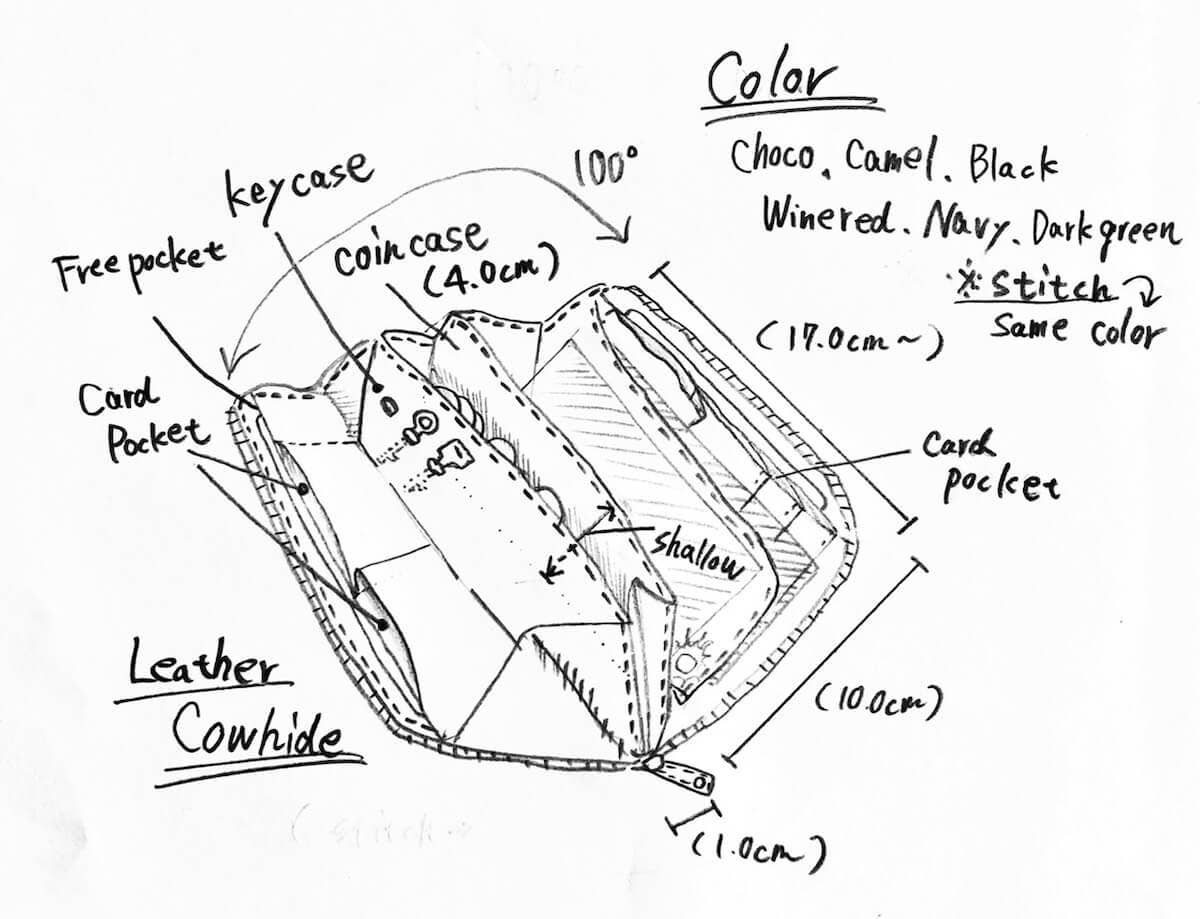 Color
Choco、Camel、Black
Winered、Navy、Dark green
※Stitch
same color
100°
key case
coin case
(4.0cm)
Free pocket
(17.0cm~)
Card
Pocket
Card
pocket
shallow
Leather
Cowhide
(10.0cm)
(1.0cm)